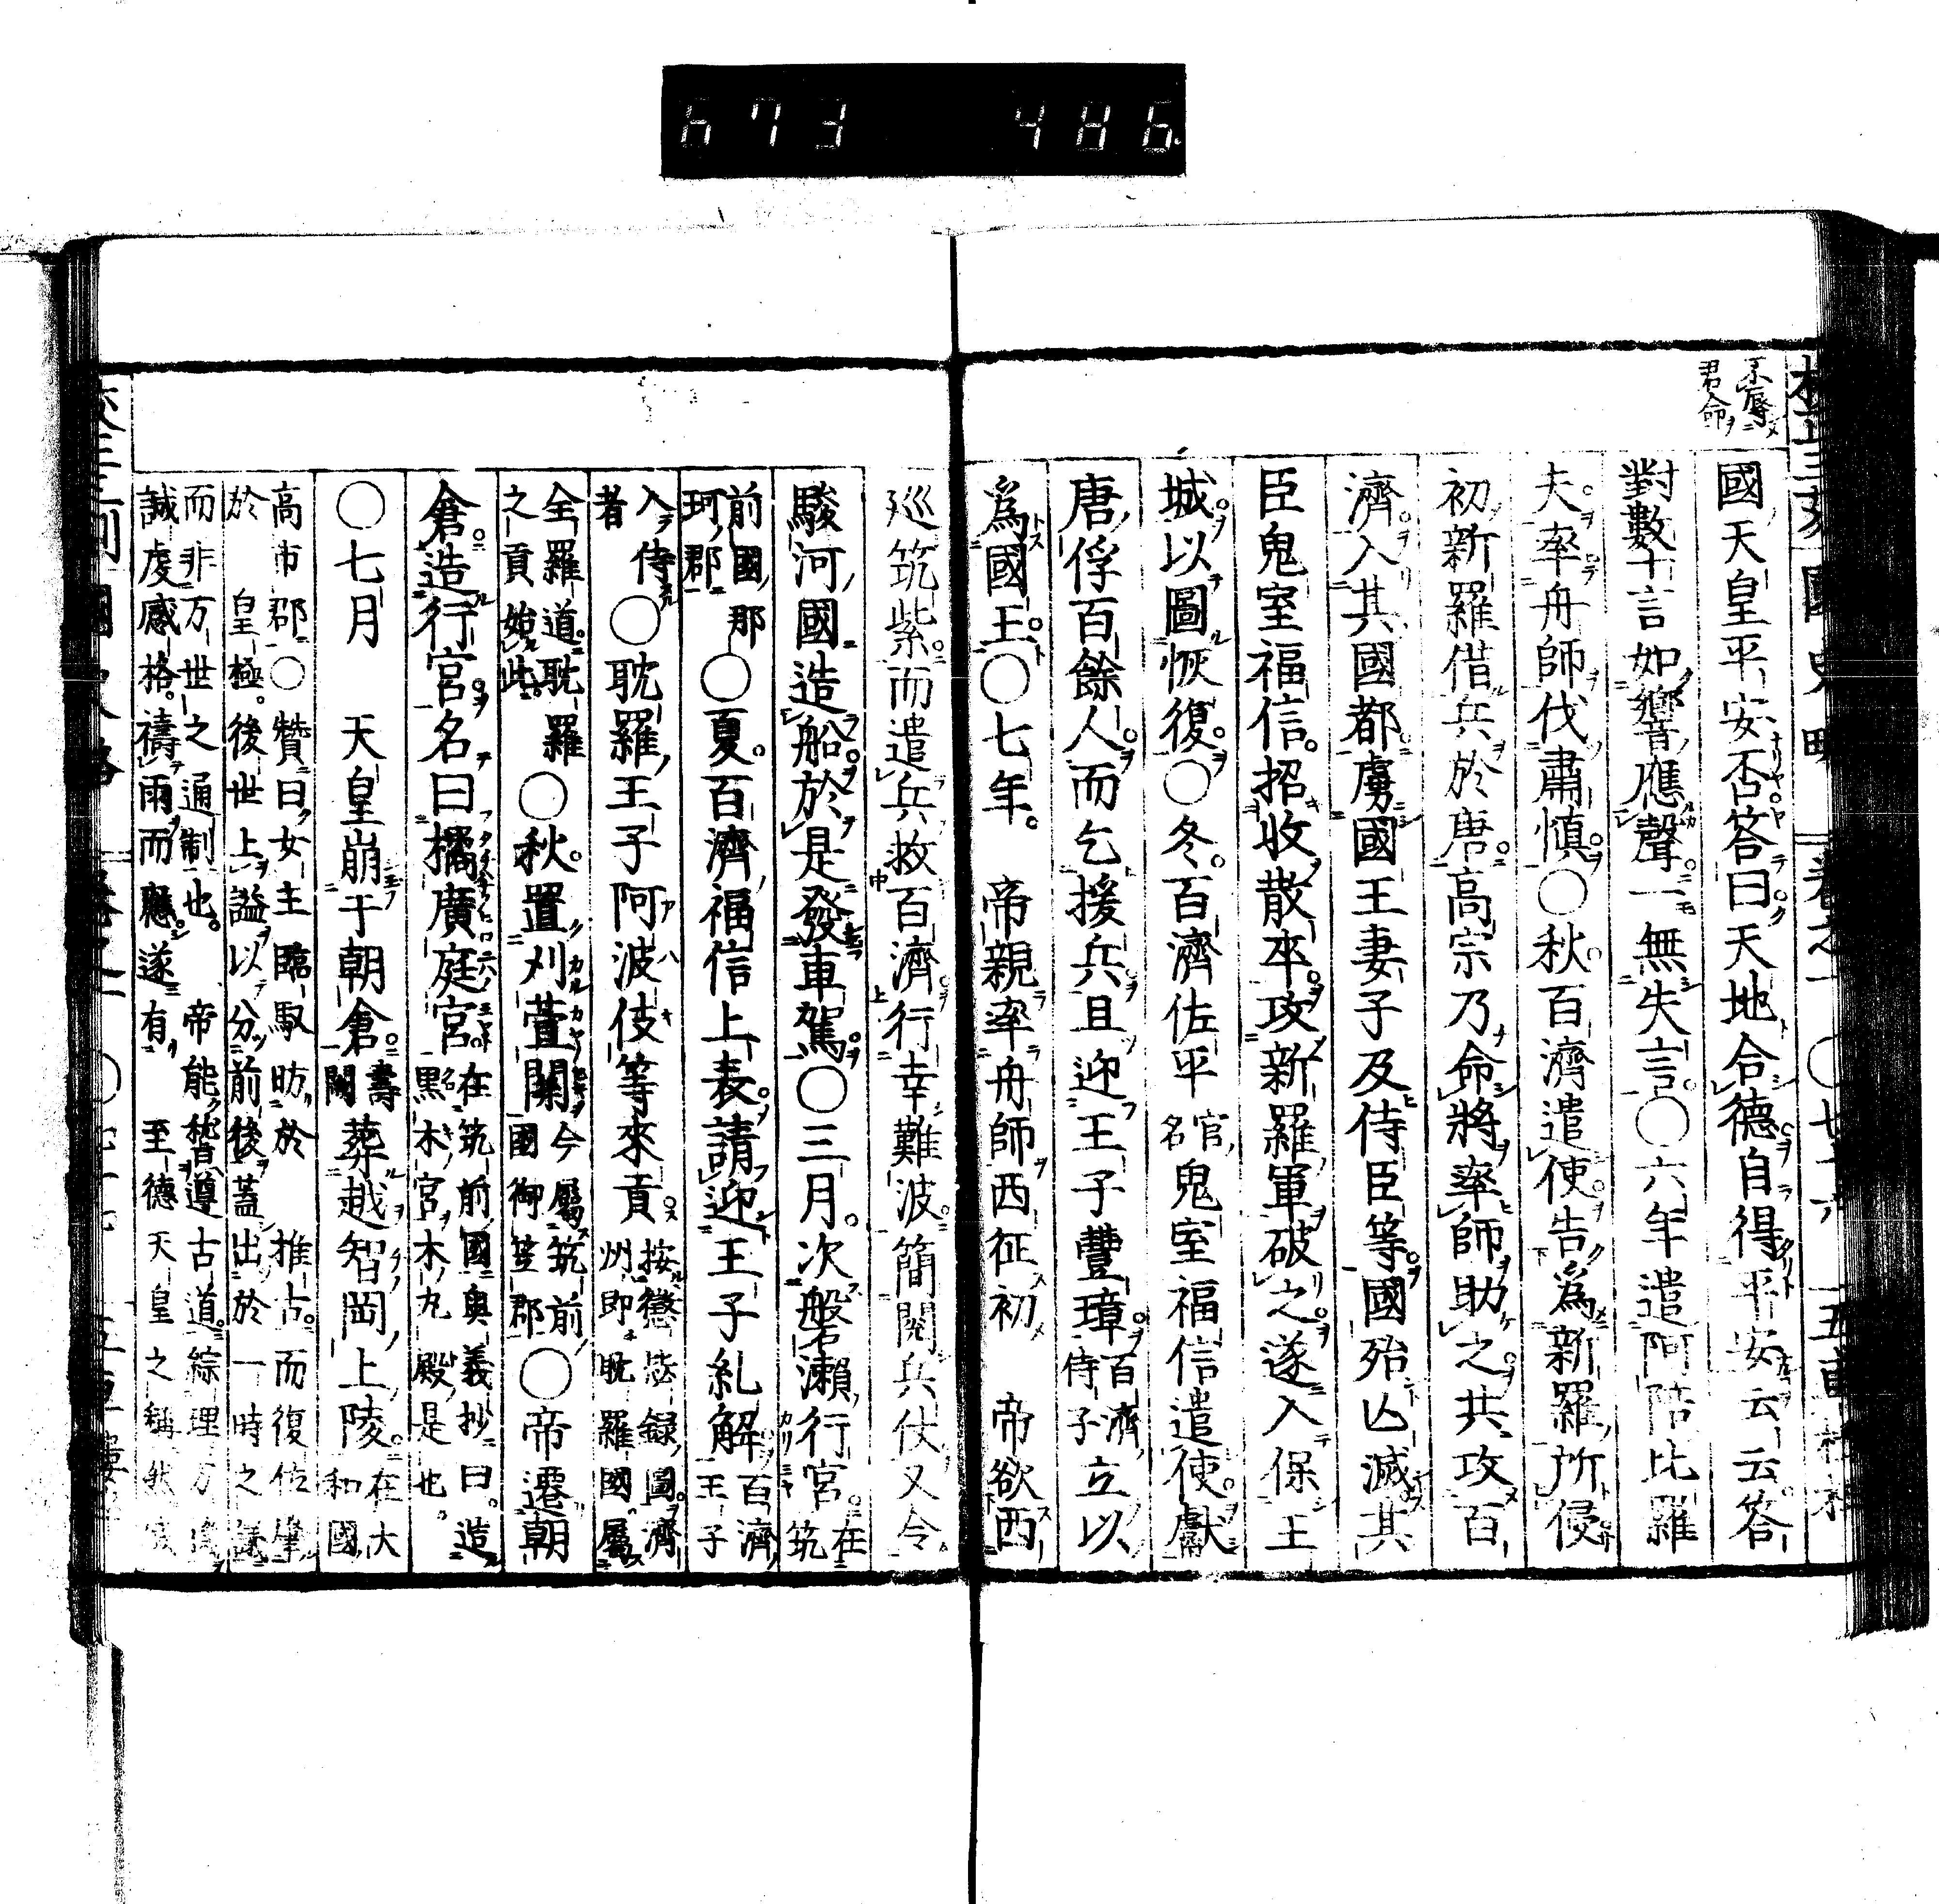 673 486
不辱
君命
國天皇平安否答曰天地合德自得平安云云答
對數十言如響應聲一無失言○六年遣阿陪比羅
夫率舟師伐肅愼○秋百濟遣使告爲新羅所侵
初新羅借兵於唐高宗乃命將率師助之共攻百
濟入其國都虜國王妻子及侍臣等國殆亾滅其
臣鬼室福信招收散卒攻新羅軍破之遂入保王
城以圖恢復○冬百濟佐平官名鬼室福信遣使獻
唐俘百餘人而乞援兵且迎王子豐璋百濟侍子立以
爲國王○七年帝親率舟師西征初帝欲西
巡筑紫而遣兵救百濟行幸難波簡閱兵仗又令
駿河國造船於是發車駕○三月次磐瀨行宮在筑
前國那珂郡○夏百濟福信上表請迎王子糺解百濟王子
入侍者○耽羅王子阿波伎等來貢按懲毖録圖濟州即耽羅國屬
全羅道耽羅之貢始此○秋置刈萱關今屬筑前國御笠郡○帝遷朝
倉造行宮名曰橘廣庭宮在筑前國奥義抄曰造黒木宮名木丸殿是也
○七月天皇崩于朝倉壽闕葬越智岡上陵在大和國
高市郡○贊曰女主臨馭昉於推古而復位肇
於皇極後世上謚以分前後蓋出於一時之
而非万世之通制也帝能稽遵古道綜理万
誠虔感格禱雨而應遂有至德天皇之稱